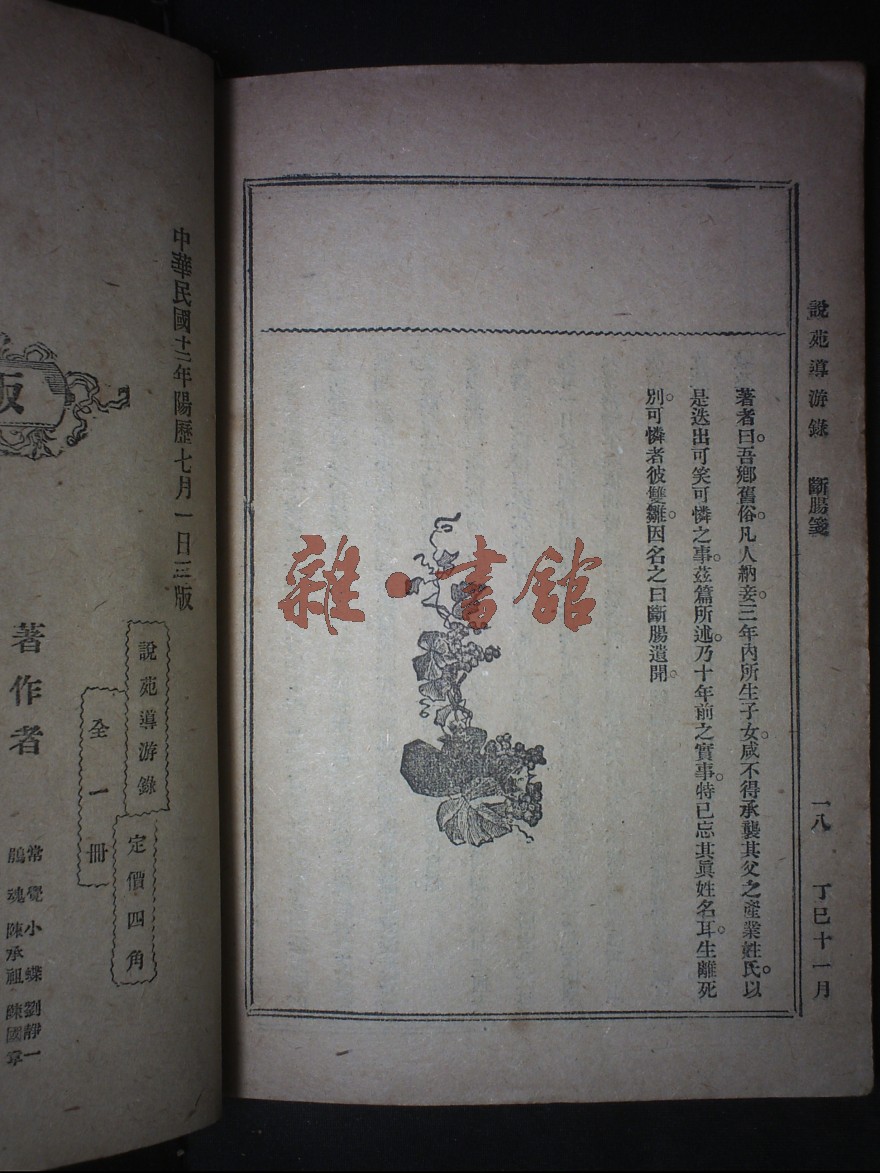 說苑導游錄　斷腸箋　一八　丁巳十一月
著者曰。吾鄉舊俗。凡人納妾。三年內所生子女。咸不得承襲其父之產業姓氏。以
是迭出可笑可憐之事。茲篇所述。乃十年前之實事。特已忘其眞姓名耳。生離死
別。可憐者彼雙雛。因名之曰斷腸遺開。
雜·書館
中華民國十二年陽歷七月一日三版
說苑導游錄
全一冊
定價四角
版
著作者
常覺　小蝶　劉靜一
鵑魂　陳承祖　陳國